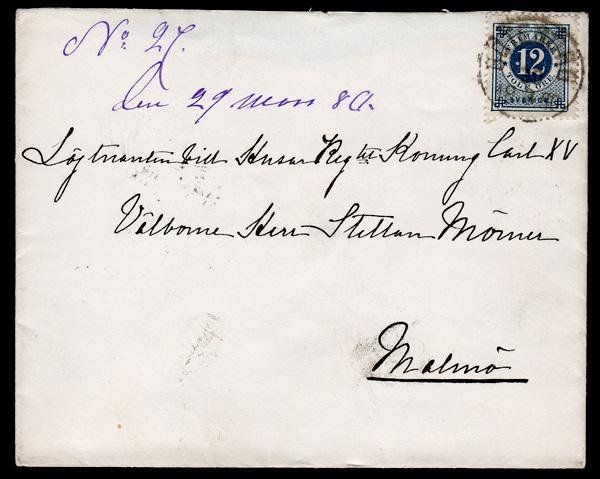 No 27.
Den 29 mars 80.
FRIMÄRKE
12
TOLF ÖRE
SVERIGE
Löjtnanten vid Husar Regtet Konung Carl XV
Välborne Herr Stellan Mörner
Malmö